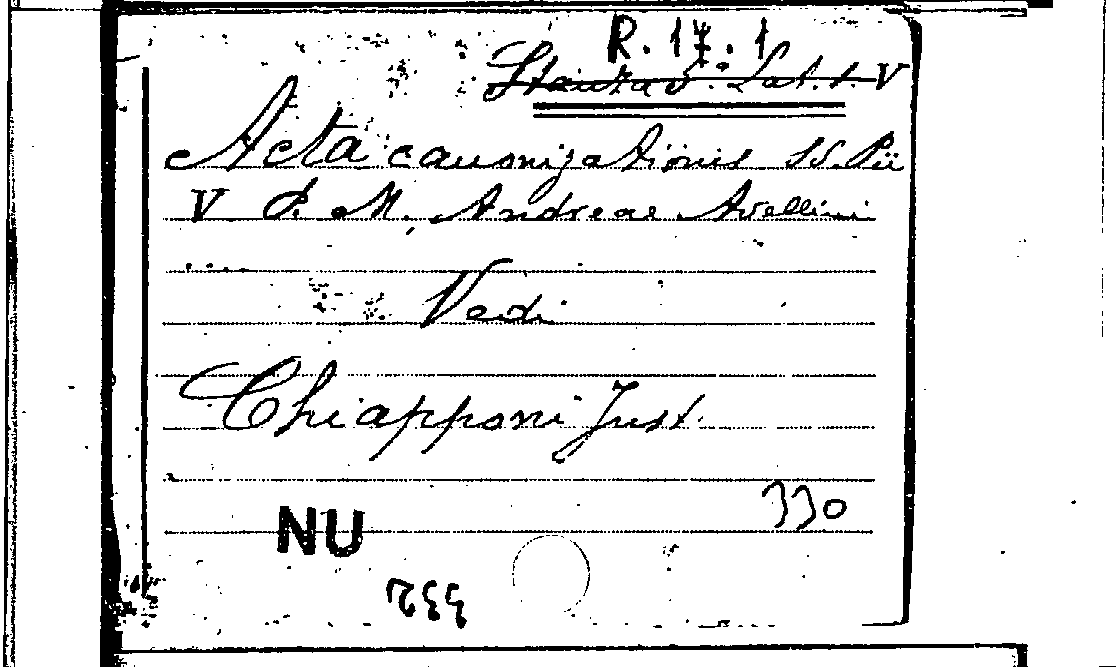 R. 17. 1
Stanza S. Lat. 1. V
Acta canonizationis SS. Pii
V P. M. Andreae Avellini
....
Vedi
Chiapponi Just.
330
NU
332